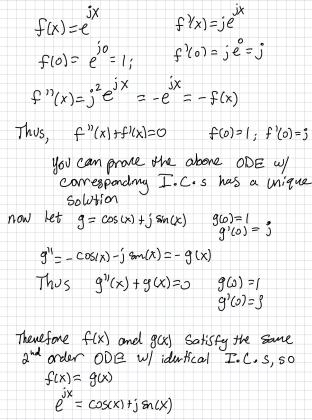 f(x)=e^{jx} f'(x)=je^{jx}
f(0)= e^{j0} = 1; f'(0)= je^0 = j
f''(x)=j^2e^{jx} = -e^{jx} = -f(x)
Thus, f''(x)+f'(x)=0 f(0)=1; f'(0)=j
You can prove the above ODE w/
corresponding I.C.s has a unique
solution
now let g = cos(x)+j sin(x) g(0)=1
g'(0)= j
g''= -cos(x)-j sin(x)= -g(x)
Thus g''(x)+g(x)=0 g(0)=1
g'(0)=j
Therefore f(x) and g(x) satisfy the same
2nd order ODE w/ identical I.C.s, so
f(x)= g(x)
e^{jx} = cos(x)+j sin(x)